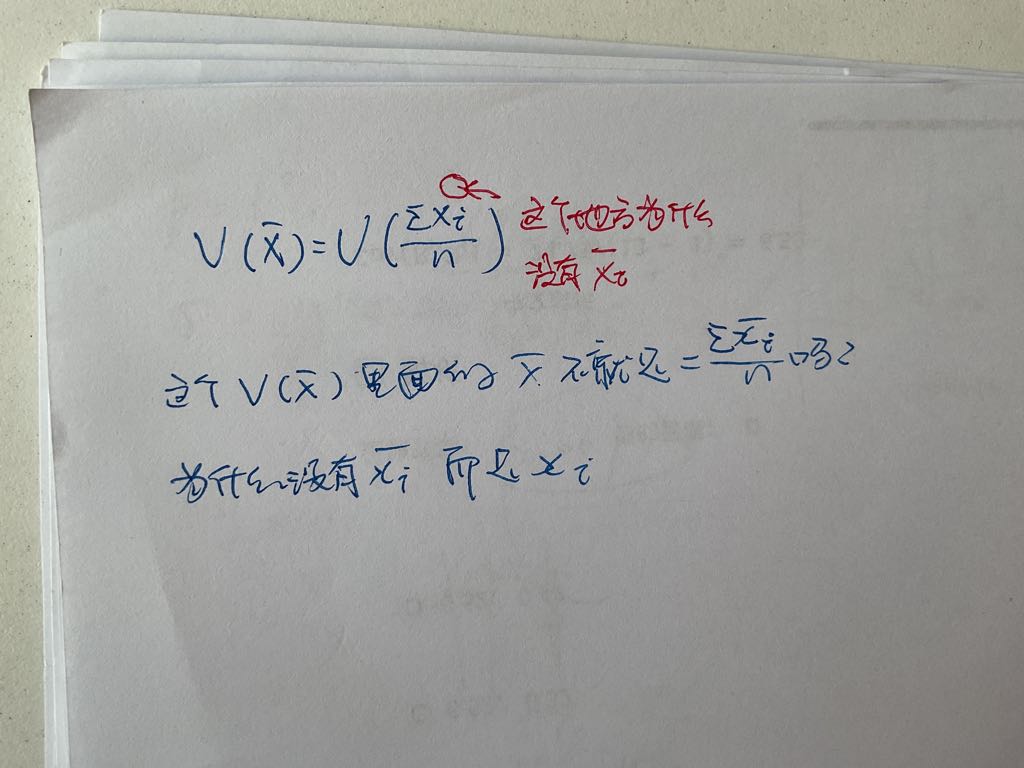 V(x̄)=V(Σxᵢ/n) 这个地方为什么
没有 x̄ᵢ
这个 V(x̄) 里面的 x̄ 不就是 = Σx̄ᵢ/n 吗?
为什么没有 x̄ᵢ 而是 xᵢ